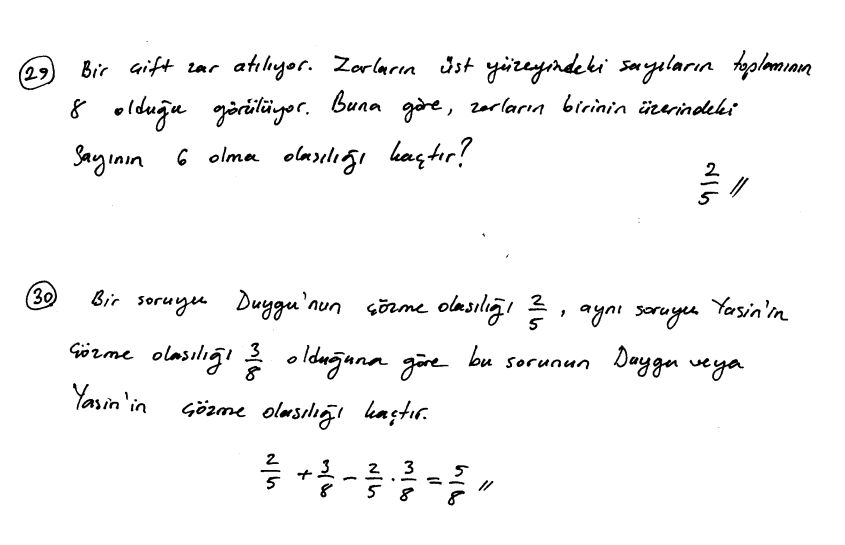 29 Bir çift zar atılıyor. Zarların üst yüzeyindeki sayıların toplamının
8 olduğu görülüyor. Buna göre, zarların birinin üzerindeki
sayının 6 olma olasılığı kaçtır?
2/5 //
30 Bir soruyu Duygu'nun çözme olasılığı 2/5, aynı soruyu Yasin'in
çözme olasılığı 3/8 olduğuna göre bu sorunun Duygu veya
Yasin'in çözme olasılığı kaçtır.
2/5 + 3/8 - 2/5 · 3/8 = 5/8 //